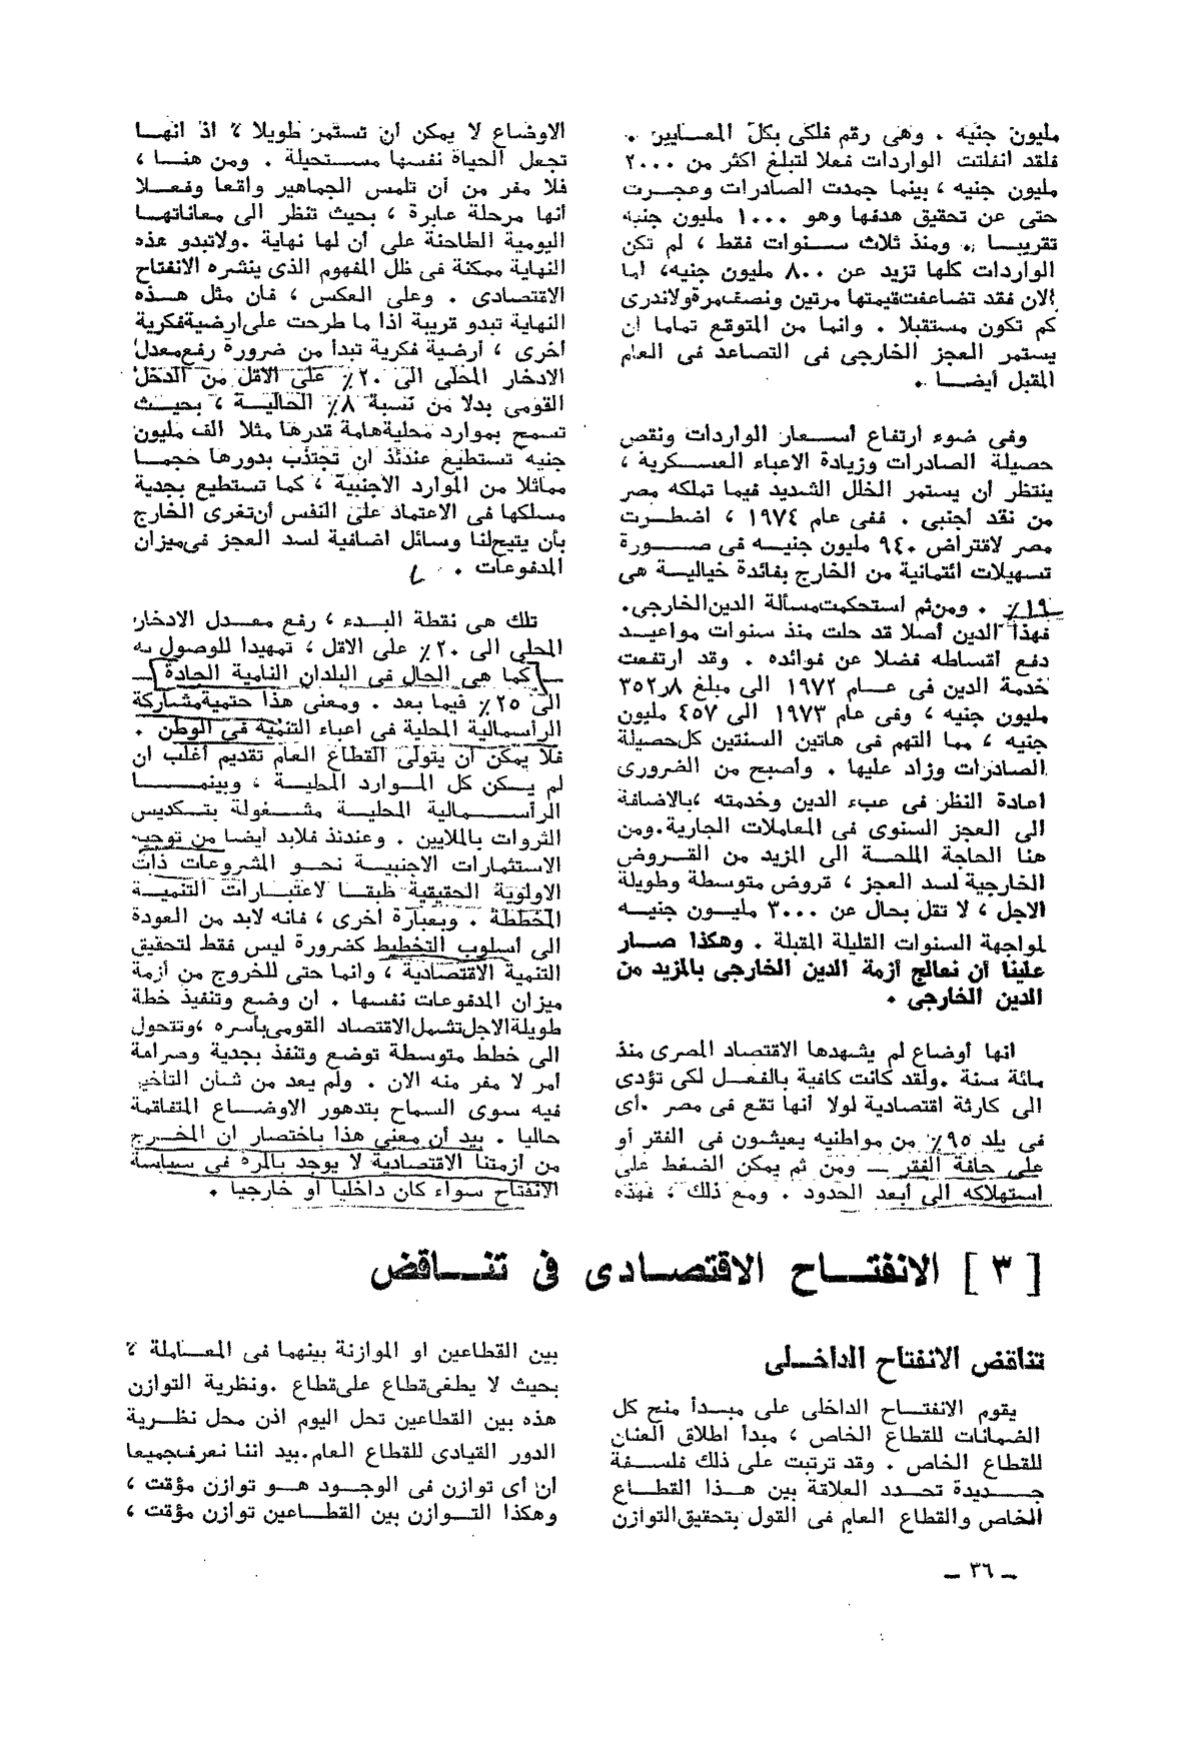 مليون جنيه . وهى رقم فلكى بكل المعايير .
فلقد انفلتت الواردات فعلا لتبلغ اكثر من ٢٠٠٠
مليون جنيه ، بينما جمدت الصادرات وعجزت
حتى عن تحقيق هدفها وهو ١٠٠٠ مليون جنيه
تقريبا . ومنذ ثلاث سنوات فقط ، لم تكن
الواردات كلها تزيد عن ٨٠٠ مليون جنيه، أما
الان فقد تضاعفت قيمتها مرتين ونصف مرة ولاندرى
كم تكون مستقبلا . وانما من المتوقع تماما ان
يستمر العجز الخارجى فى التصاعد فى العام
المقبل أيضا .
وفى ضوء ارتفاع أسعار الواردات ونقص
حصيلة الصادرات وزيادة الاعباء العسكرية ،
ينتظر أن يستمر الخلل الشديد فيما تملكه مصر
من نقد أجنبى . ففى عام ١٩٧٤ ، اضطرت
مصر لاقتراض ٩٤٠ مليون جنيه فى صورة
تسهيلات ائتمانية من الخارج بفائدة خيالية هى
١٩٪ . ومن ثم استحكمت مسألة الدين الخارجى.
فهذا الدين أصلا قد حلت منذ سنوات مواعيد
دفع أقساطه فضلا عن فوائده . وقد ارتفعت
خدمة الدين فى عام ١٩٧٢ الى مبلغ ٣٥٢٫٨
مليون جنيه ، وفى عام ١٩٧٣ الى ٤٥٧ مليون
جنيه ، مما التهم فى هاتين السنتين كل حصيلة
الصادرات وزاد عليها . وأصبح من الضرورى
اعادة النظر فى عبء الدين وخدمته ،بالاضافة
الى العجز السنوى فى المعاملات الجارية.ومن
هنا الحاجة الملحة الى المزيد من القروض
الخارجية لسد العجز ، قروض متوسطة وطويلة
الاجل ، لا تقل بحال عن ٣٠٠٠ مليون جنيه
لمواجهة السنوات القليلة المقبلة . وهكذا صار
علينا أن نعالج أزمة الدين الخارجى بالمزيد من
الدين الخارجى .
انها أوضاع لم يشهدها الاقتصاد المصرى منذ
مائة سنة .ولقد كانت كافية بالفعل لكى تؤدى
الى كارثة اقتصادية لولا أنها تقع فى مصر .أى
فى بلد ٩٥٪ من مواطنيه يعيشون فى الفقر أو
على حافة الفقر — ومن ثم يمكن الضغط على
استهلاكه الى أبعد الحدود . ومع ذلك ، فهذه
الاوضاع لا يمكن أن تستمر طويلا ، اذ انها
تجعل الحياة نفسها مستحيلة . ومن هنا ،
فلا مفر من أن تلمس الجماهير واقعا وفعلا
أنها مرحلة عابرة ، بحيث تنظر الى معاناتها
اليومية الطاحنة على أن لها نهاية .ولاتبدو هذه
النهاية ممكنة فى ظل المفهوم الذى ينشره الانفتاح
الاقتصادى . وعلى العكس ، فان مثل هذه
النهاية تبدو قريبة اذا ما طرحت على أرضية فكرية
أخرى ، أرضية فكرية تبدأ من ضرورة رفع معدل
الادخار المحلى الى ٢٠٪ على الاقل من الدخل
القومى بدلا من نسبة ٨٪ الحالية ، بحيث
تسمح بموارد محلية هامة قدرها مثلا الف مليون
جنيه تستطيع عندئذ ان تجتذب بدورها حجما
مماثلا من الموارد الاجنبية ، كما تستطيع بجدية
مسلكها فى الاعتماد على النفس أن تغرى الخارج
بأن يتيح لنا وسائل اضافية لسد العجز فى ميزان
المدفوعات .
تلك هى نقطة البدء ، رفع معدل الادخار
المحلى الى ٢٠٪ على الاقل ، تمهيدا للوصول به
— كما هى الحال فى البلدان النامية الجادة —
الى ٢٥٪ فيما بعد . ومعنى هذا حتمية مشاركة
الرأسمالية المحلية فى أعباء التنمية فى الوطن .
فلا يمكن أن يتولى القطاع العام تقديم أغلب ان
لم يكن كل الموارد المحلية ، وبينما
الرأسمالية المحلية مشغولة بتكديس
الثروات بالملايين . وعندئذ فلابد أيضا من توجيه
الاستثمارات الاجنبية نحو المشروعات ذات
الاولوية الحقيقية طبقا لاعتبارات التنمية
المخططة . وبعبارة أخرى ، فانه لابد من العودة
الى أسلوب التخطيط كضرورة ليس فقط لتحقيق
التنمية الاقتصادية ، وانما حتى للخروج من أزمة
ميزان المدفوعات نفسها . ان وضع وتنفيذ خطة
طويلة الاجل تشمل الاقتصاد القومى بأسره ،وتتحول
الى خطط متوسطة توضع وتنفذ بجدية وصرامة
أمر لا مفر منه الان . ولم يعد من شأن التأخير
فيه سوى السماح بتدهور الاوضاع المتفاقمة
حاليا . بيد أن معنى هذا باختصار ان المخرج
من أزمتنا الاقتصادية لا يوجد بالمرة فى سياسة
الانفتاح سواء كان داخليا أو خارجيا .
[ ٣ ] الانفتاح الاقتصادى فى تناقض
تناقض الانفتاح الداخلى
يقوم الانفتاح الداخلى على مبدأ منح كل
الضمانات للقطاع الخاص ، مبدأ اطلاق العنان
للقطاع الخاص . وقد ترتبت على ذلك فلسفة
جديدة تحدد العلاقة بين هذا القطاع
الخاص والقطاع العام فى القول بتحقيق التوازن
بين القطاعين او الموازنة بينهما فى المعاملة ،
بحيث لا يطغى قطاع على قطاع .ونظرية التوازن
هذه بين القطاعين تحل اليوم اذن محل نظرية
الدور القيادى للقطاع العام.بيد اننا نعرف جميعا
أن أى توازن فى الوجود هو توازن مؤقت ،
وهكذا التوازن بين القطاعين توازن مؤقت ،
— ٣٦ —